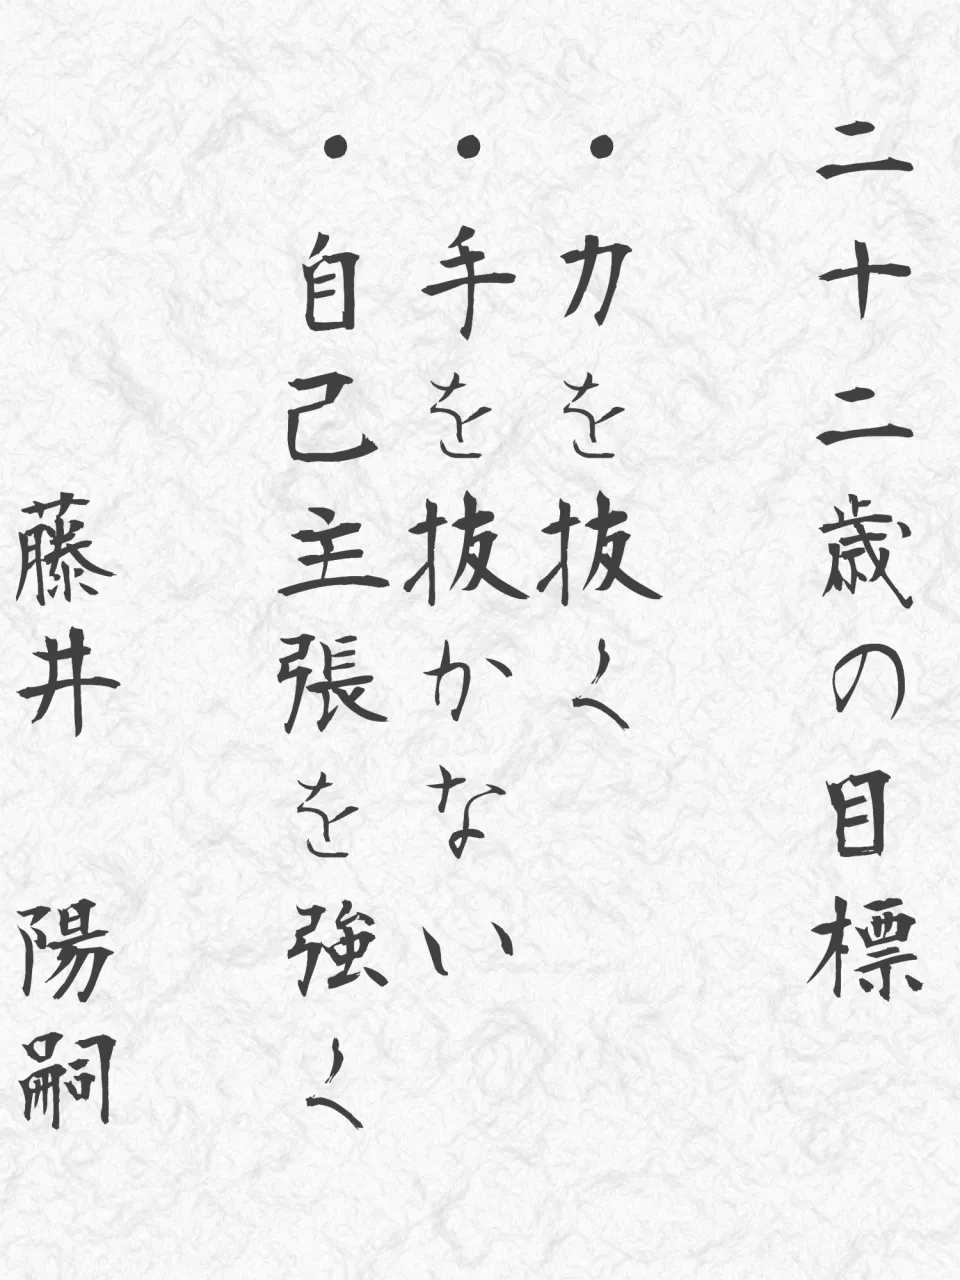 二十二歳の目標
・力を抜く
・手を抜かない
・自己主張を強く
藤井 陽嗣